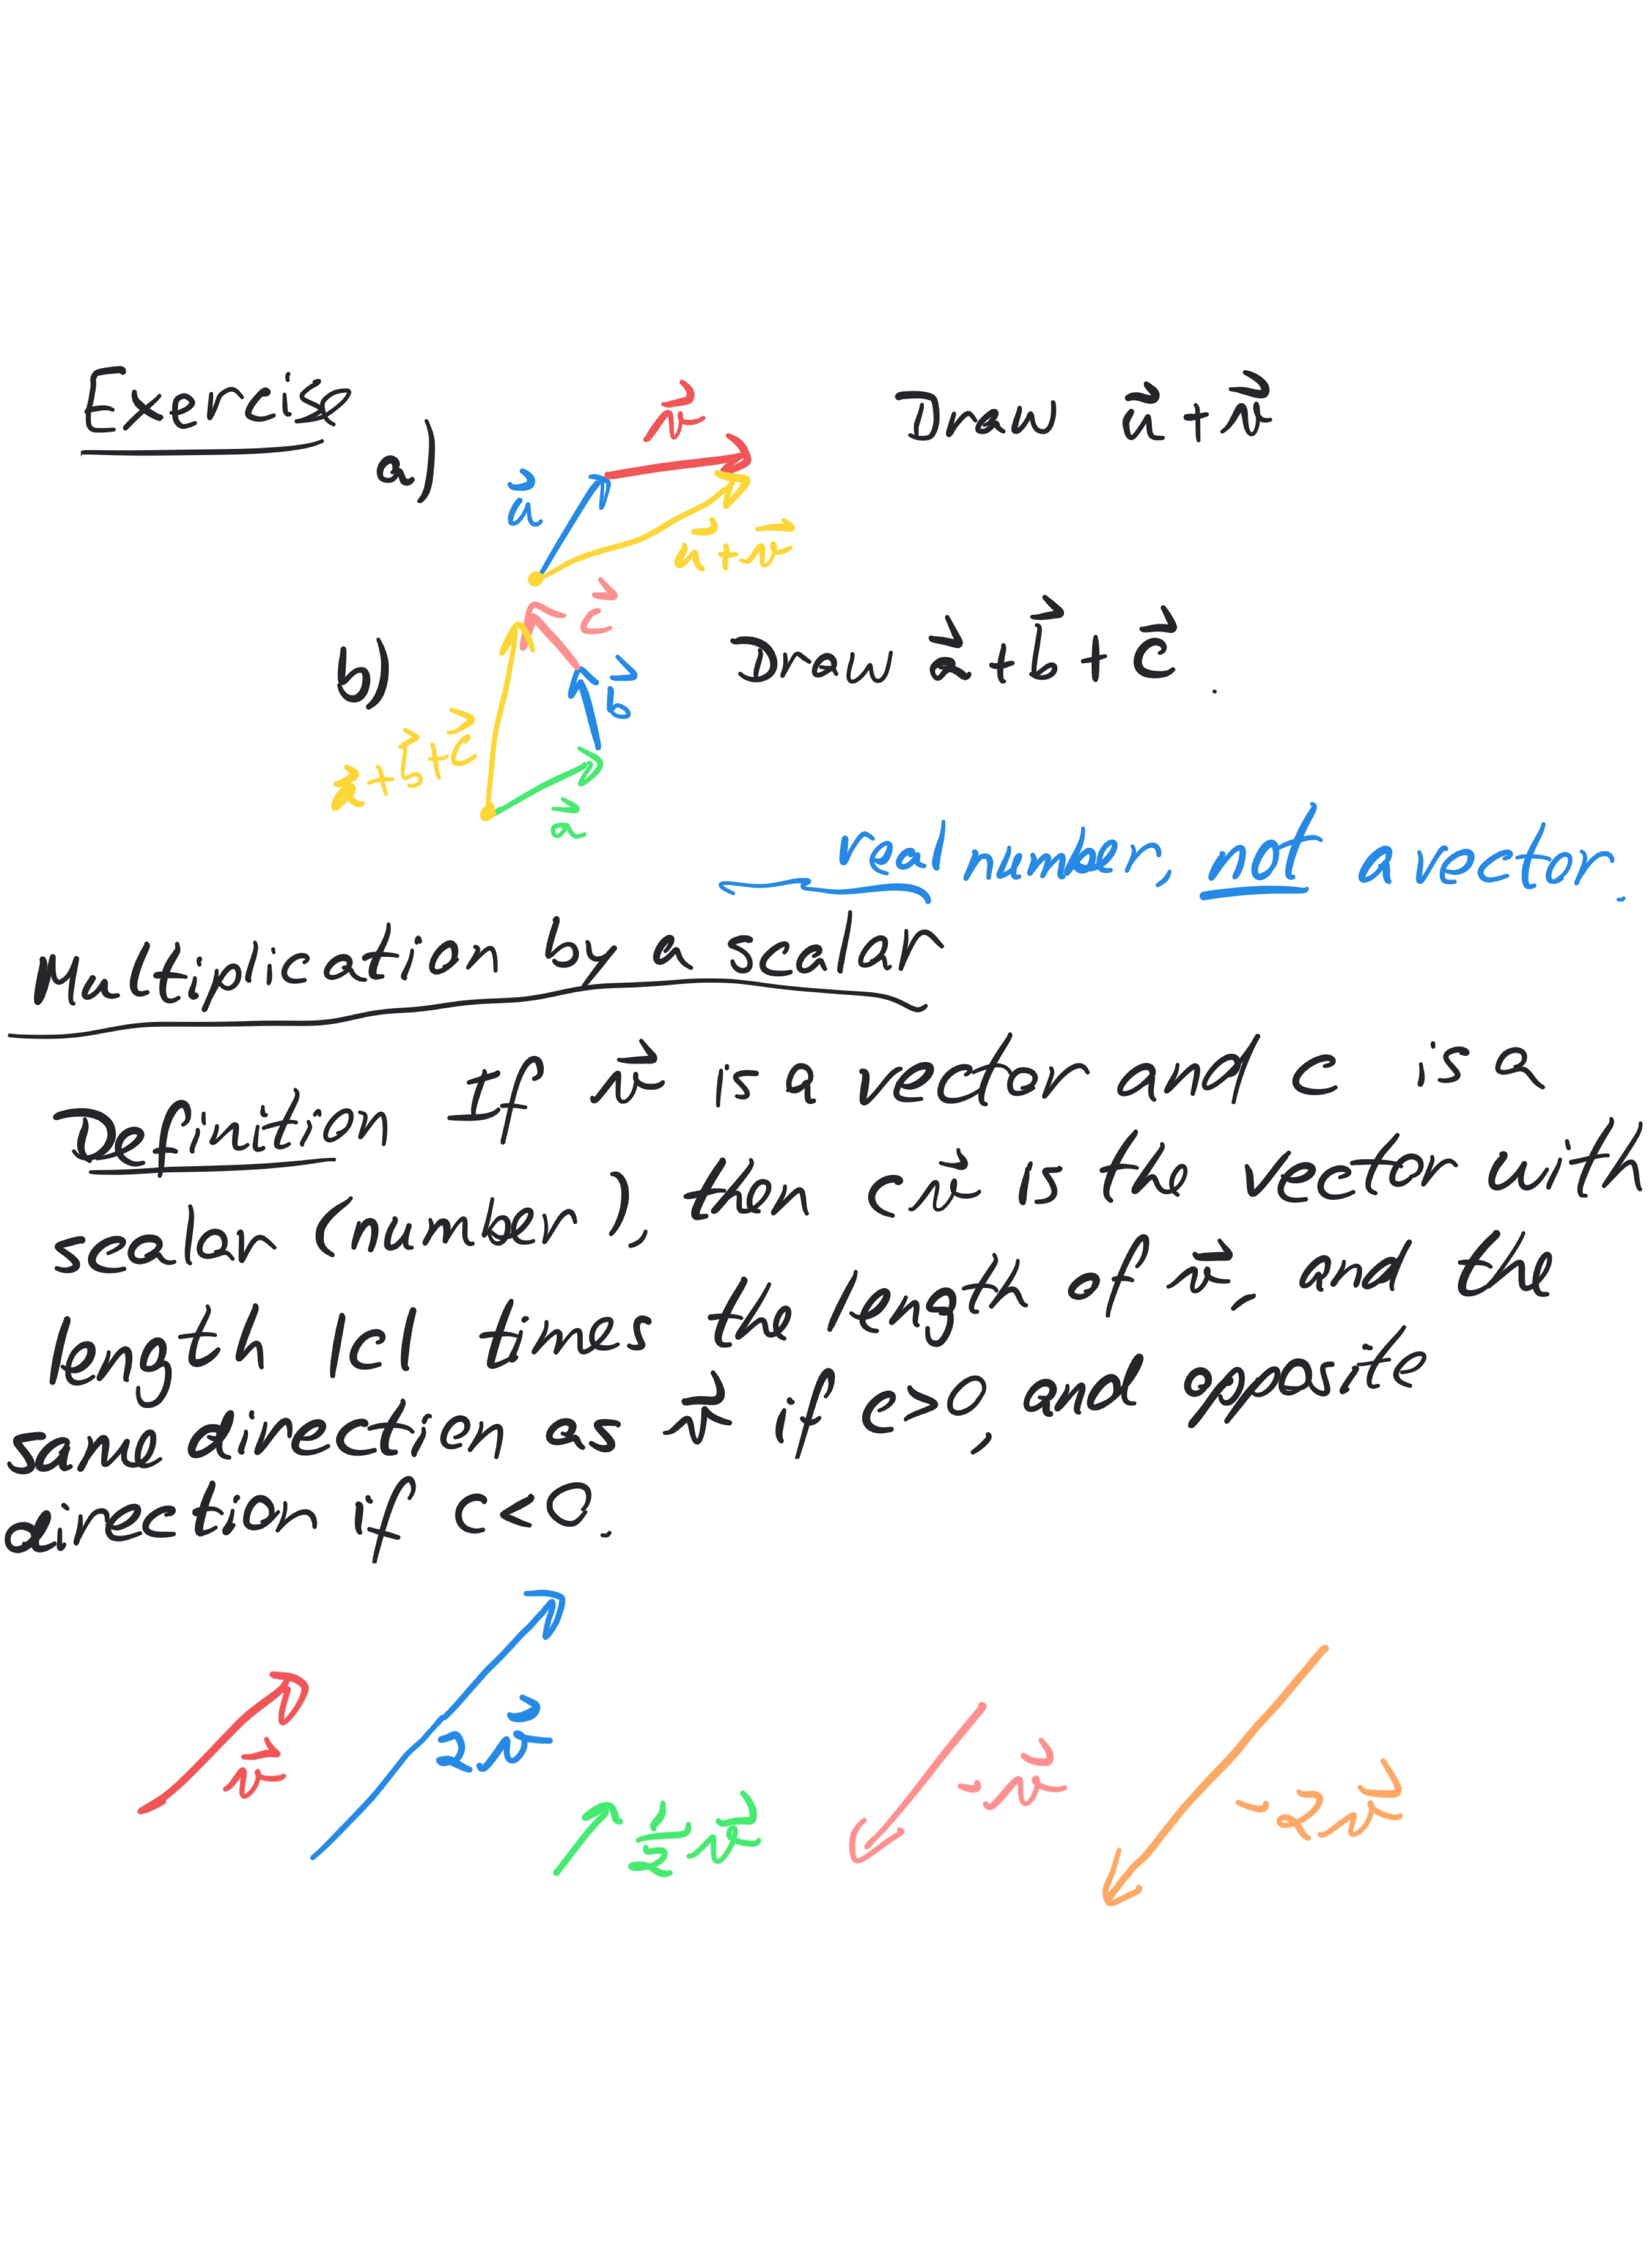 Exercise
a) u⃗ v⃗ u⃗+v⃗ Draw u⃗+v⃗
b) a⃗ b⃗ c⃗ a⃗+b⃗+c⃗ Draw a⃗+b⃗+c⃗.
real number, not a vector.
Multiplication by a scalar
Definition If v⃗ is a vector and c is a
scalar (number), then cv⃗ is the vector with
length |c| times the length of v⃗, and the
same direction as v⃗ if c>0, and opposite
direction if c<0.
v⃗ 2v⃗ ½v⃗ -v⃗ -2v⃗